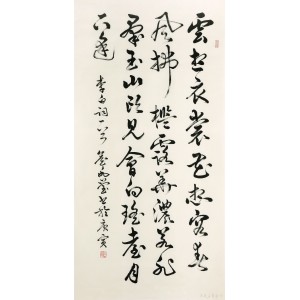 雲想衣裳花想容春
風拂檻露華濃若非
羣玉山頭見會向瑤臺月
下逢 李白詞一首 書於庚寅